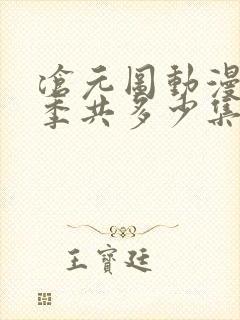 滄元圖動漫
季共多少集
王寶廷